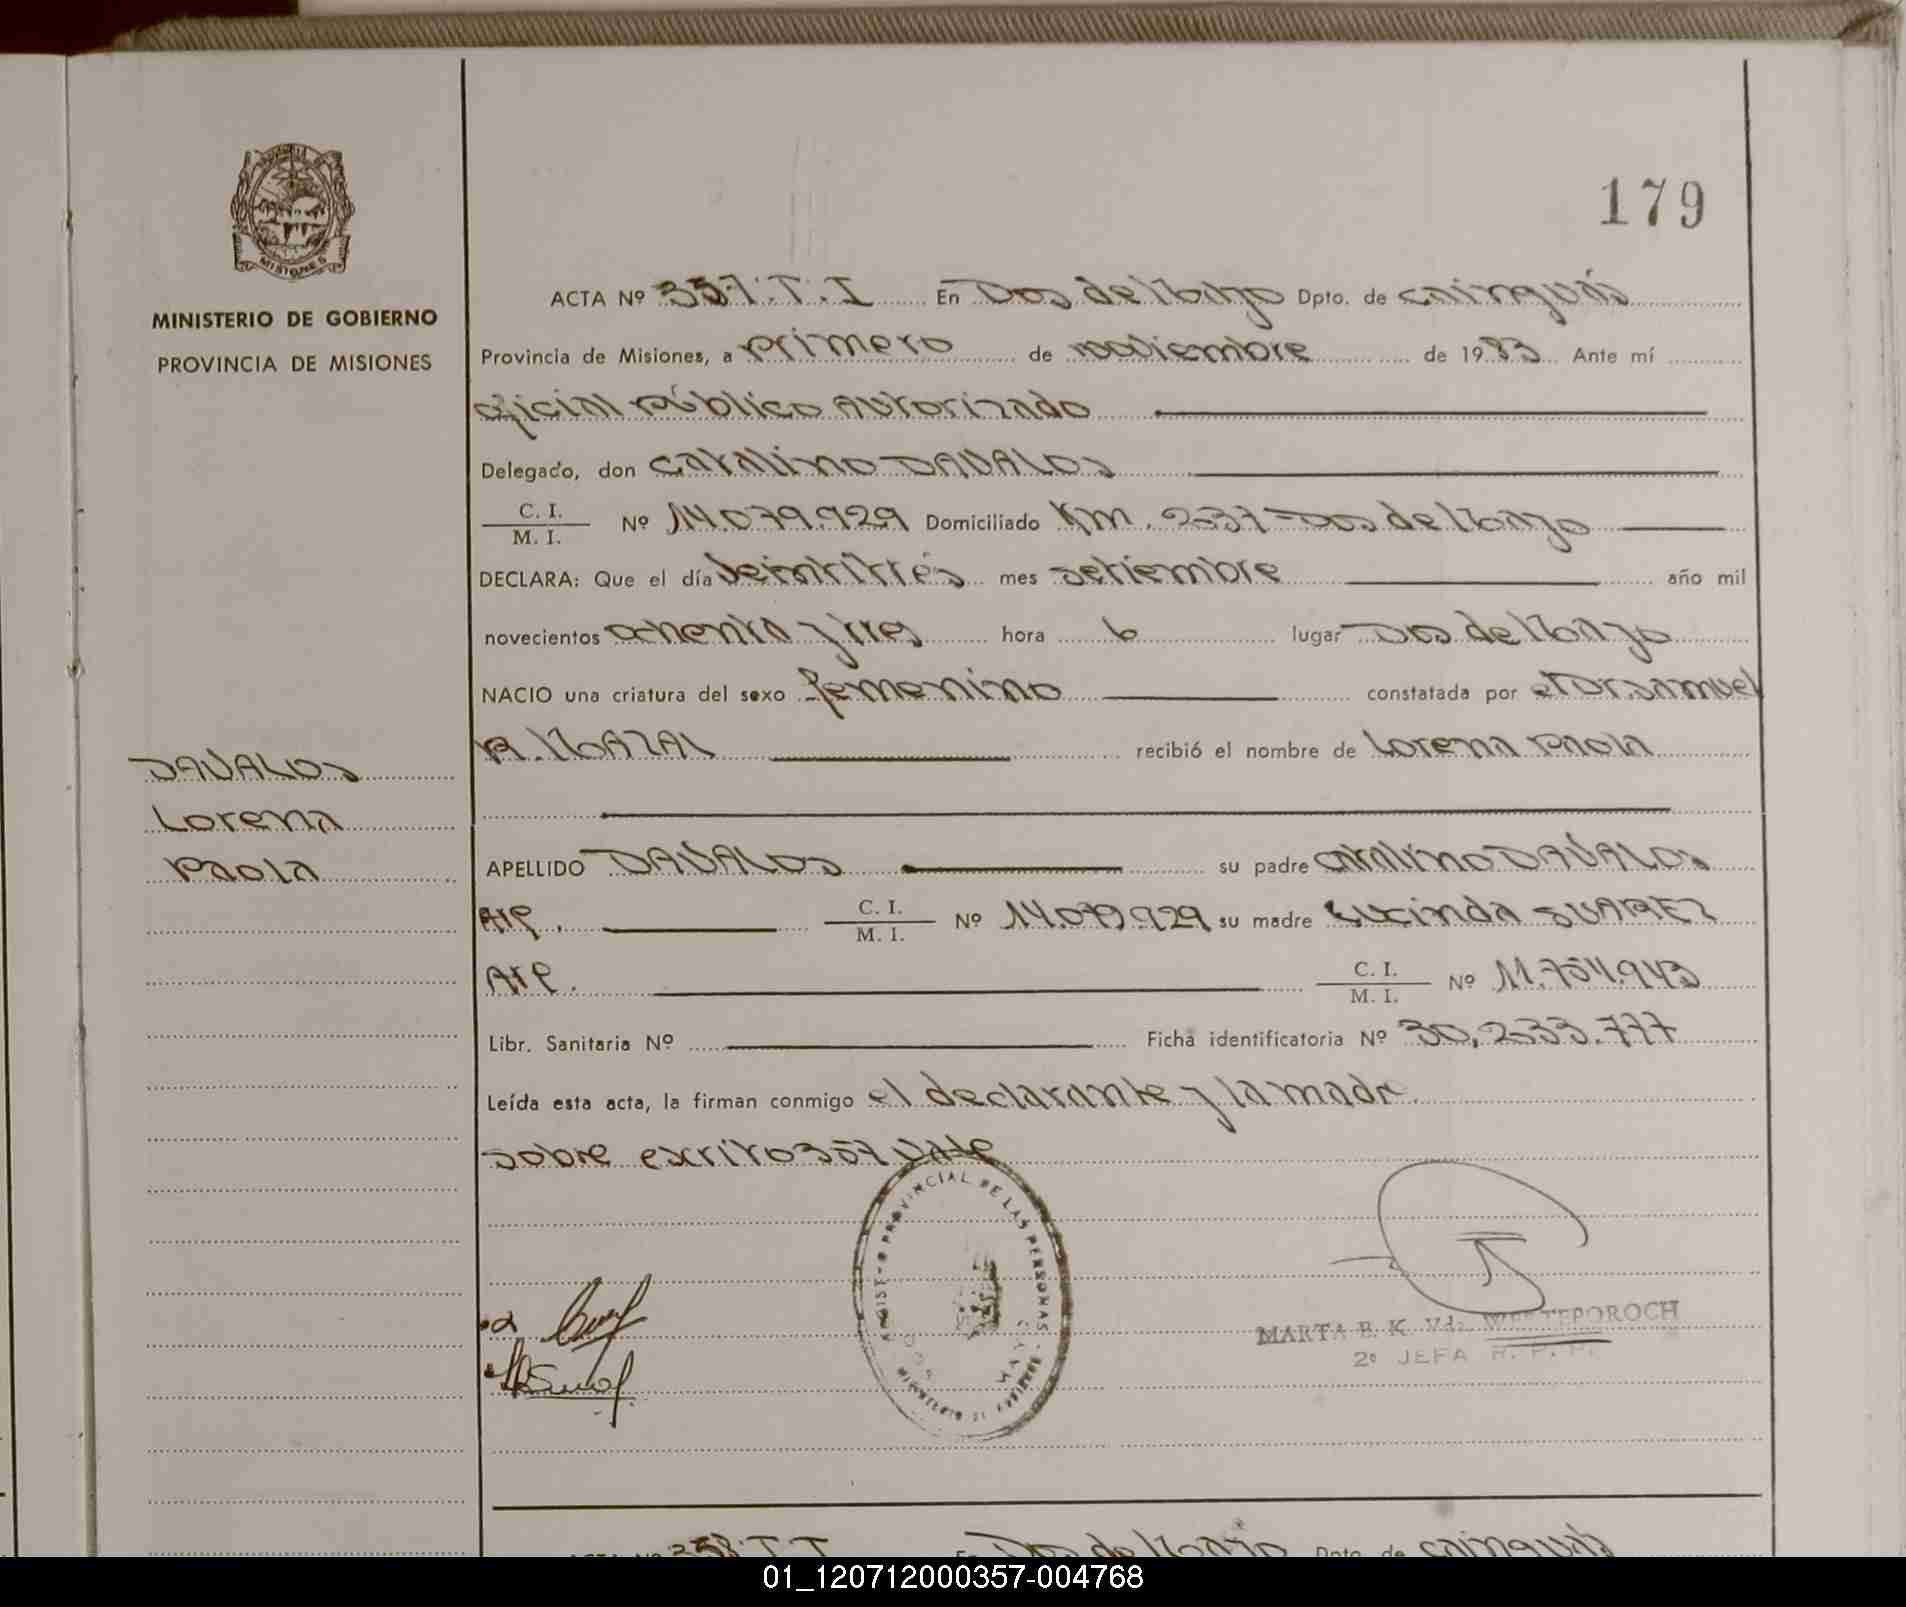 179
MISIONES
MINISTERIO DE GOBIERNO
PROVINCIA DE MISIONES
ACTA Nº 357. T. I En Dos de Mayo Dpto. de cainguás
Provincia de Misiones, a primero de noviembre de 1983 Ante mí
oficial público Autorizado
Delegado, don Catalino DAVALOS
C. I. / M. I. Nº 14.079.929 Domiciliado Km. 237-Dos de Mayo
DECLARA: Que el día veintitrés mes setiembre año mil
novecientos ochenta y tres hora 6 lugar Dos de Mayo
NACIO una criatura del sexo femenino constatada por el Dr. Samuel
A. MAZAL recibió el nombre de Lorena Paola
DAVALOS
Lorena
Paola
APELLIDO DAVALOS su padre Catalino DAVALOS
Arg. C. I. / M. I. Nº 14.079.929 su madre Lucinda SUAREZ
Arg. C. I. / M. I. Nº 11.754.943
Libr. Sanitaria Nº Ficha identificatoria Nº 30,233.777
Leída esta acta, la firman conmigo el declarante y la madre.
sobre exrito 357 vale
PROVINCIAL DE LAS PERSONAS
MARTA E. K. Vda. WESTEPOROCH
2º JEFA R. P. P.
358 T I En Dos de Mayo Dpto. de cainguás
01_120712000357-004768